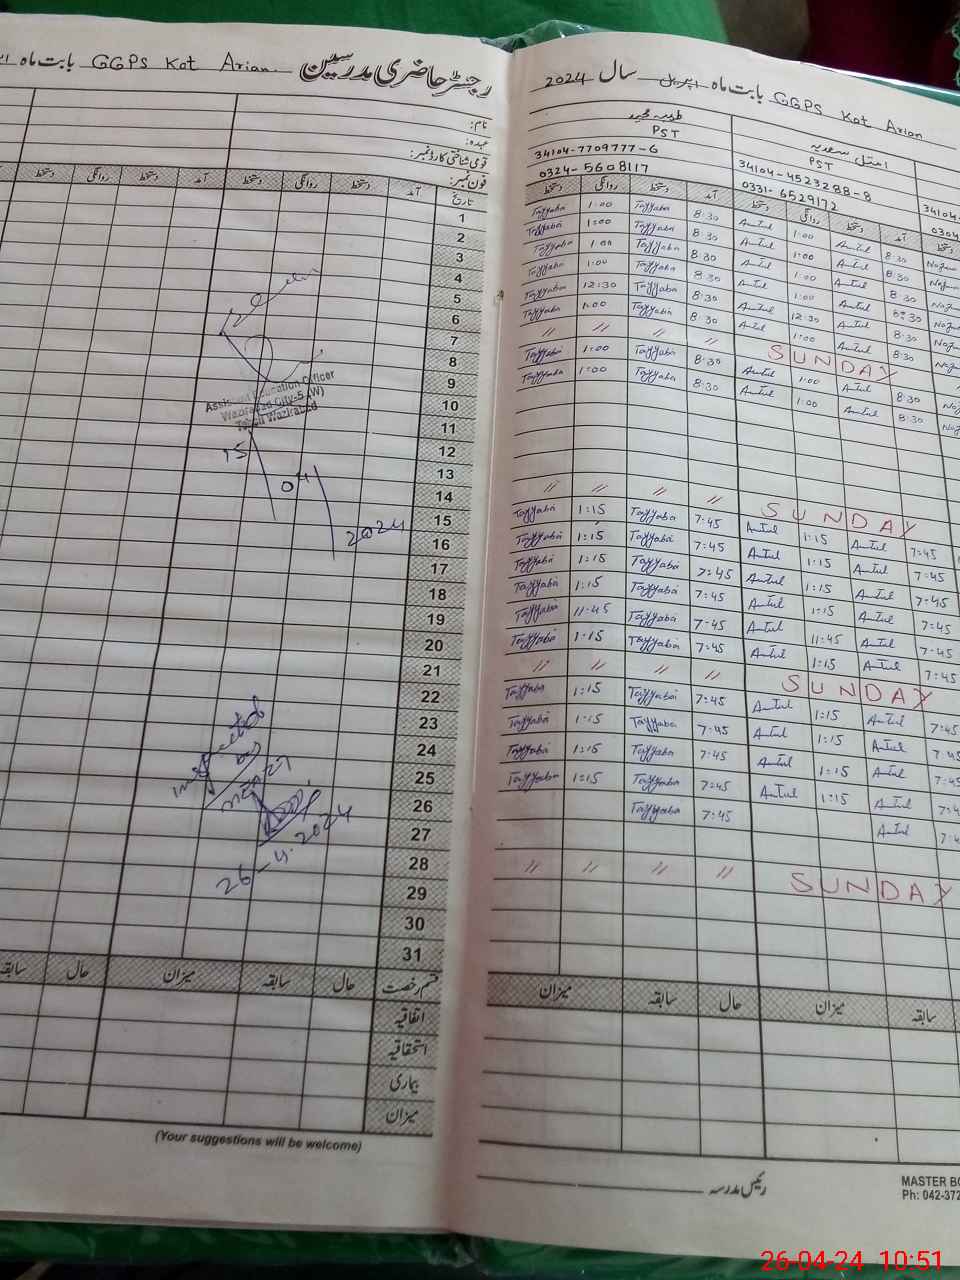 رجسٹر حاضری مدرسین GGPS Kot Arian بابت ماہ
نام:
عہدہ:
قومی شناختی کارڈ نمبر:
فون نمبر:
تاریخ آمد دستخط روانگی دستخط آمد دستخط روانگی دستخط
1
2
3
4
5
6
7
8
9
10
11
12
13
14
15
16
17
18
19
20
21
22
23
24
25
26
27
28
29
30
31
Assistant Education Officer
Wazirabad City-5 (W)
Tehsil Wazirabad
15 04 2024
inspected
by
MEA 27
26-4-2024
قسم رخصت حال سابقہ میزان حال سابقہ
اتفاقیہ
استحقاقیہ
بیماری
میزان
(Your suggestions will be welcome)
GGPS Kot Arian بابت ماہ اپریل سال 2024
طیبہ مجید
PST
34104-7709777-6
0324-5608117
امتل سعدیہ
PST
34104-4523288-8
0331-6529172
34104-
0304
دستخط روانگی دستخط آمد دستخط روانگی دستخط آمد دستخط
Tayyaba 1:00 Tayyaba 8:30 Amtul 1:00 Amtul 8:30
Tayyaba 1:00 Tayyaba 8:30 Amtul 1:00 Amtul 8:30
Tayyaba 1:00 Tayyaba 8:30 Amtul 1:00 Amtul 8:30
Tayyaba 1:00 Tayyaba 8:30 Amtul 1:00 Amtul 8:30
Tayyaba 12:30 Tayyaba 8:30 Amtul 12:30 Amtul 8:30
Tayyaba 1:00 Tayyaba 8:30 Amtul 1:00 Amtul 8:30
〃 〃 〃 〃 SUNDAY
Tayyaba 1:00 Tayyaba 8:30 Amtul 1:00 Amtul 8:30
Tayyaba 1:00 Tayyaba 8:30 Amtul 1:00 Amtul 8:30
〃 〃 〃 〃 SUNDAY
Tayyaba 1:15 Tayyaba 7:45 Amtul 1:15 Amtul 7:45
Tayyaba 1:15 Tayyaba 7:45 Amtul 1:15 Amtul 7:45
Tayyaba 1:15 Tayyaba 7:45 Amtul 1:15 Amtul 7:45
Tayyaba 1:15 Tayyaba 7:45 Amtul 1:15 Amtul 7:45
Tayyaba 11:45 Tayyaba 7:45 Amtul 11:45 Amtul 7:45
Tayyaba 1:15 Tayyaba 7:45 Amtul 1:15 Amtul 7:45
〃 〃 〃 〃 SUNDAY
Tayyaba 1:15 Tayyaba 7:45 Amtul 1:15 Amtul 7:45
Tayyaba 1:15 Tayyaba 7:45 Amtul 1:15 Amtul 7:45
Tayyaba 1:15 Tayyaba 7:45 Amtul 1:15 Amtul 7:45
Tayyaba 1:15 Tayyaba 7:45 Amtul 1:15 Amtul
Tayyaba 7:45 Amtul
〃 〃 〃 〃 SUNDAY
میزان سابقہ حال میزان سابقہ
رئیس مدرسہ
MASTER
Ph: 042-372
26-04-24 10:51